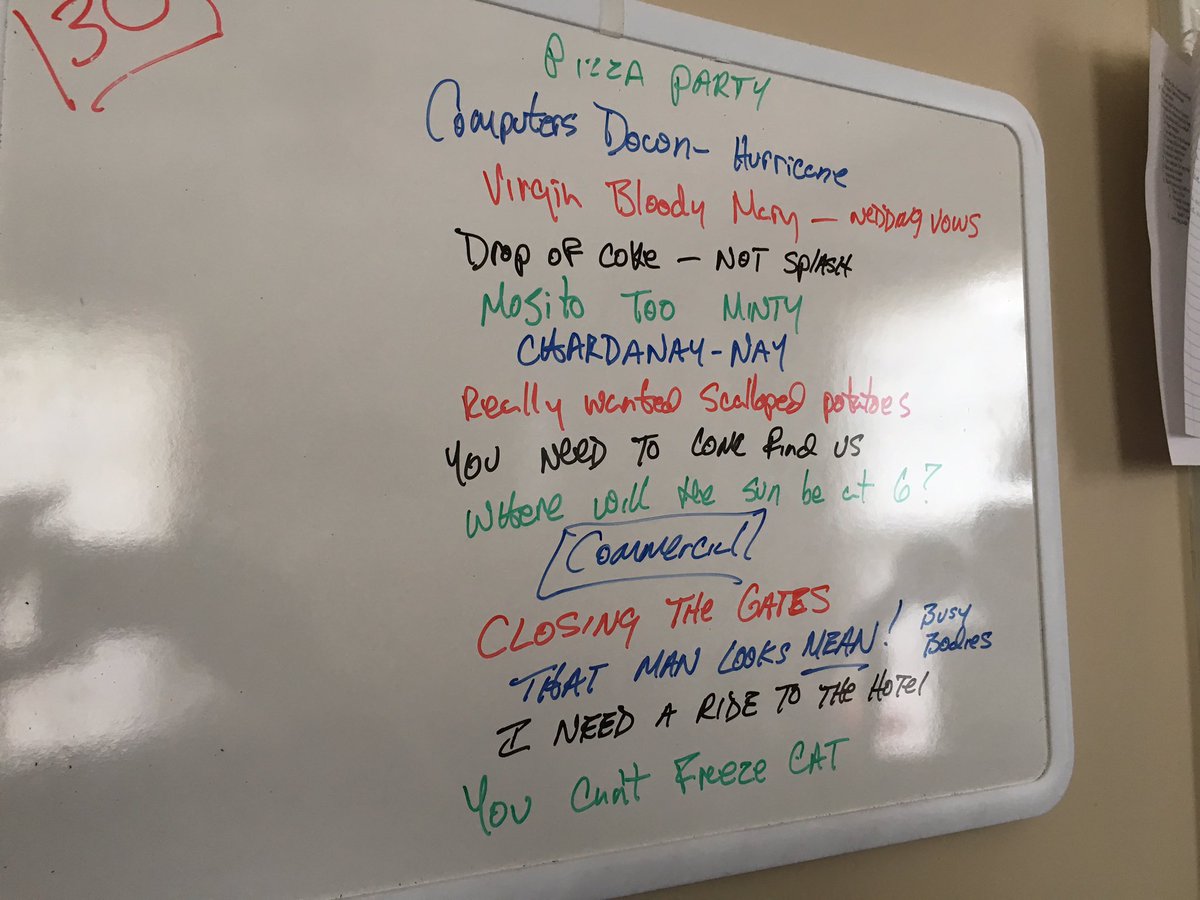 30
PIZZA PARTY
Computers Docon- Hurricane
Virgin Bloody Mary - WEDDING VOWS
Drop OF COKE - NOT SPLASH
Mosito TOO MINTY
CHARDANAY-NAY
Really wanted Scalloped potatoes
YOU NEED TO COME find US
WHERE will the sun be at 6?
Commercial
CLOSING THE GATES
THAT MAN LOOKS MEAN! Busy Bodies
I NEED A RIDE TO THE HOTEL
YOU Can't FREEZE CAT